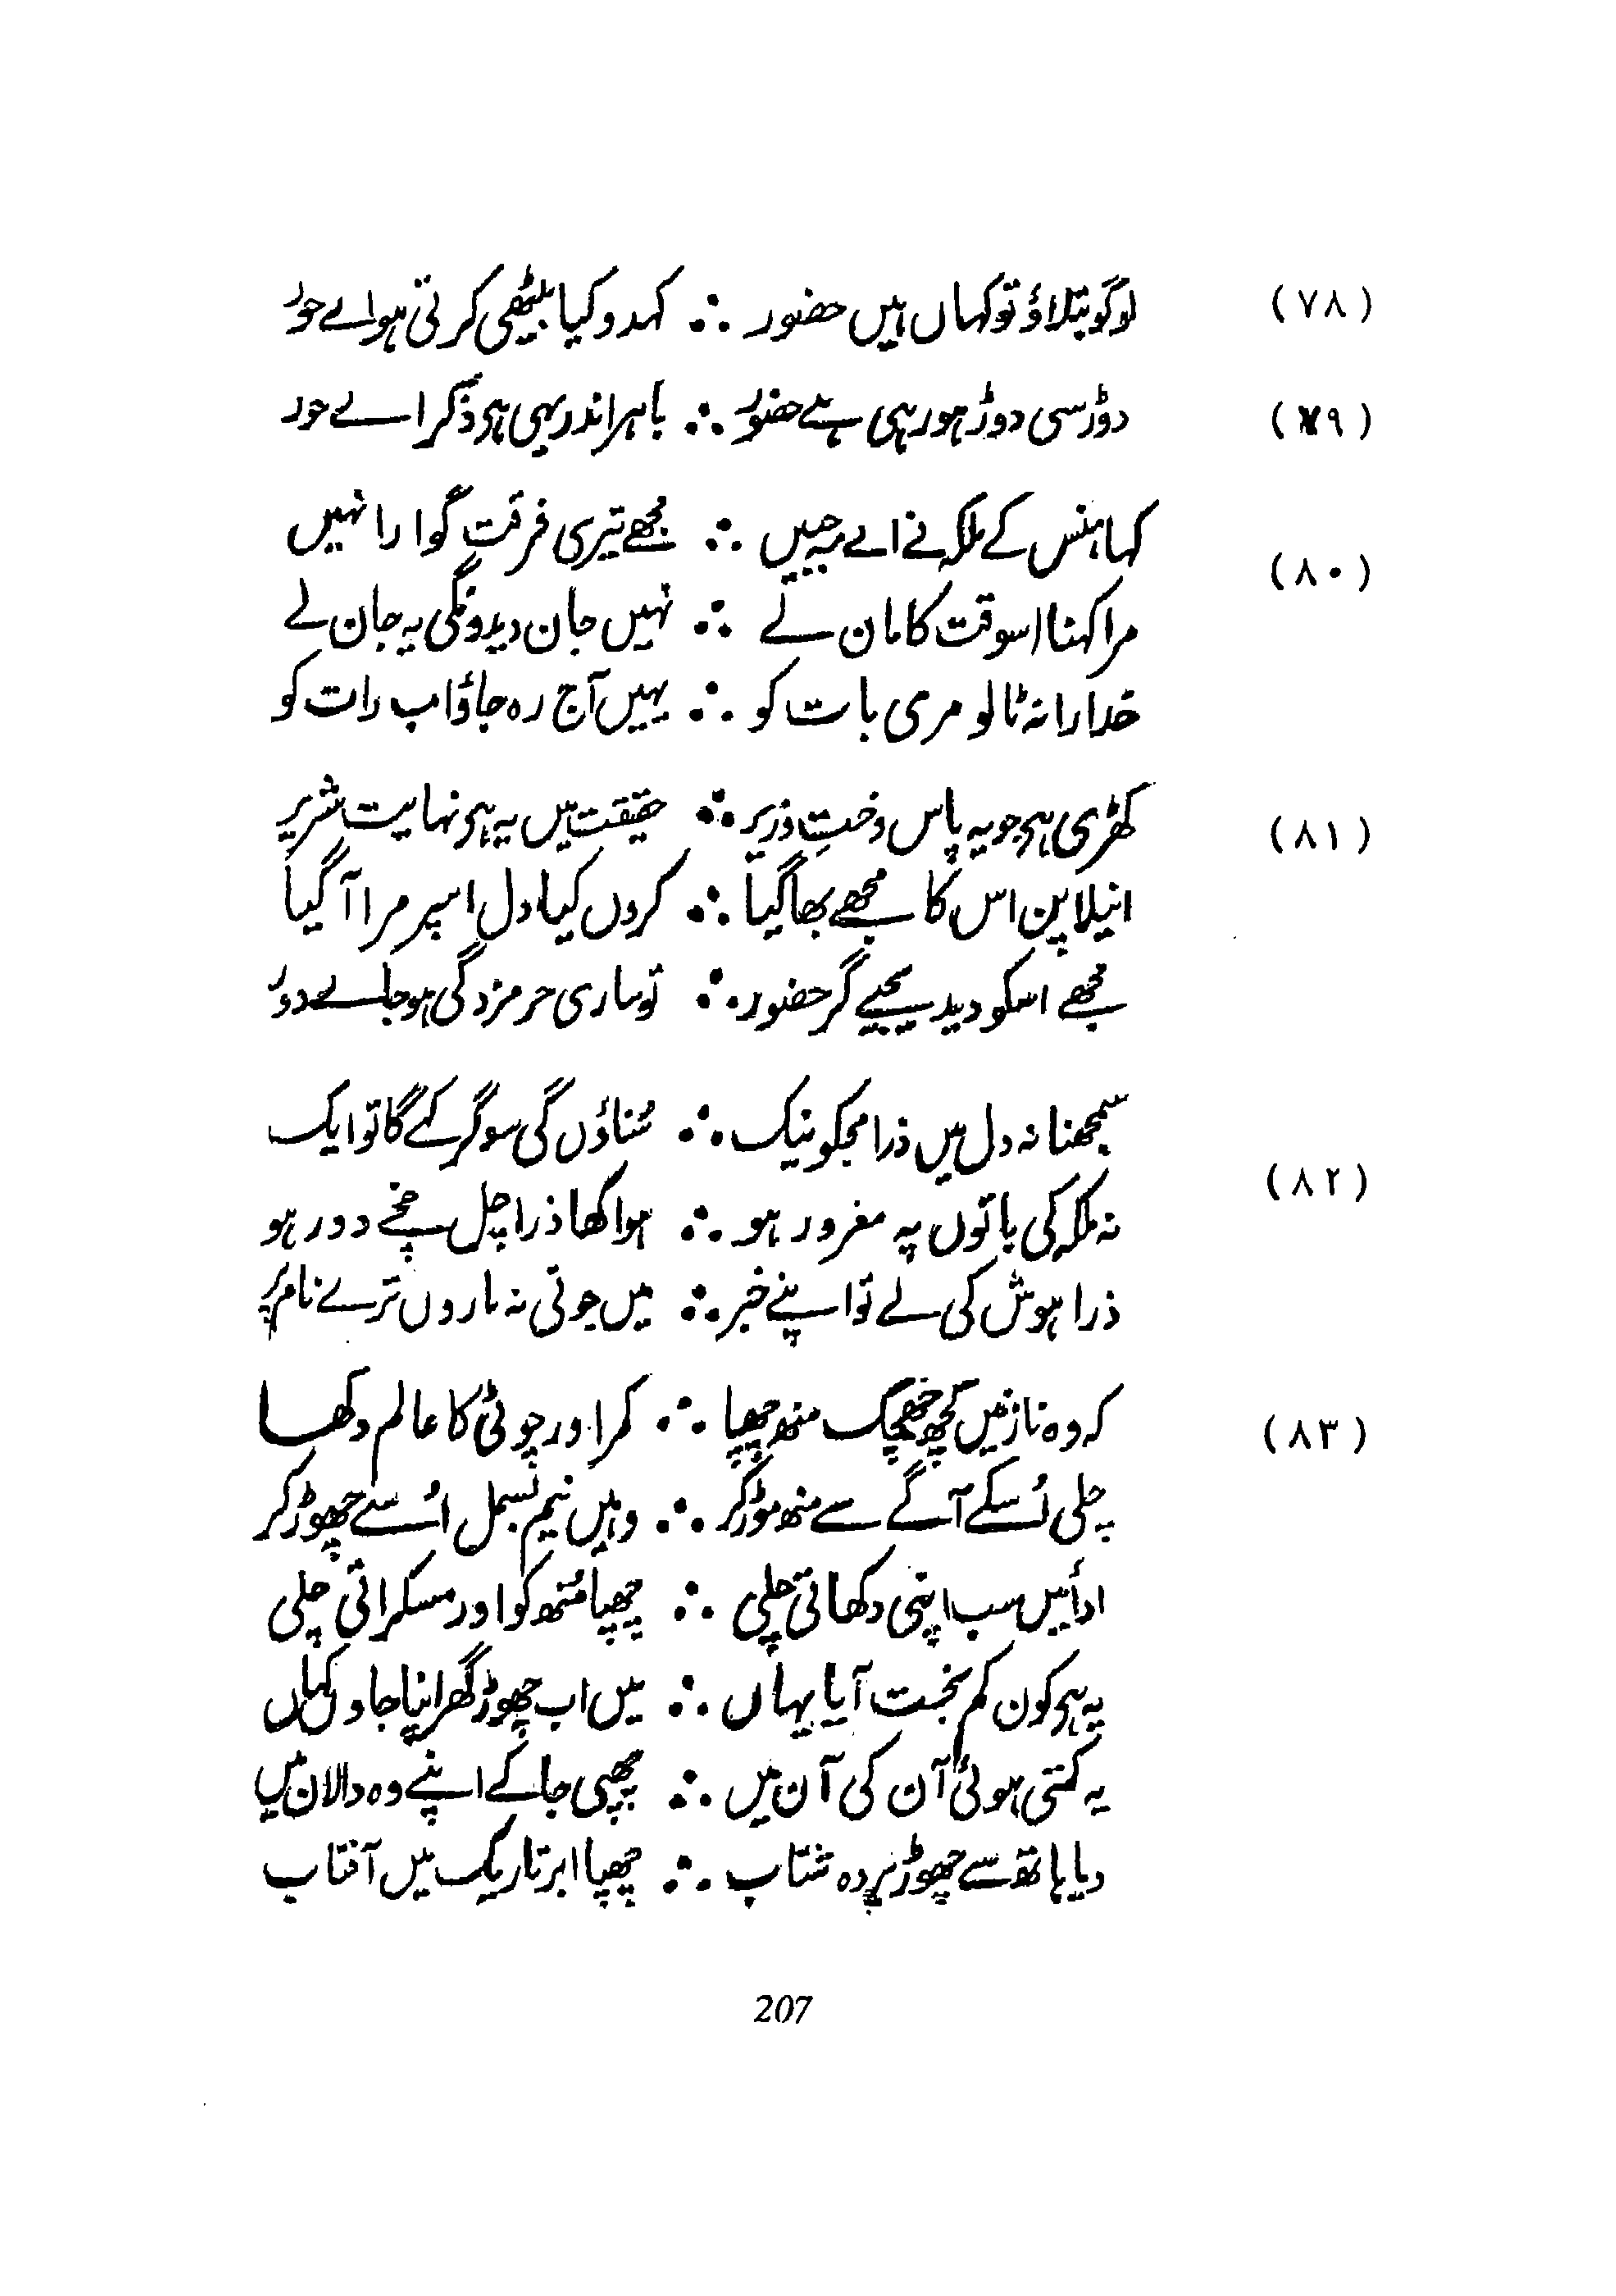 (۷۸) لوگو بتلاؤ تو کہاں ہیں حضور ∴ کہدو کیا بیٹھی کرتی ہو اے حور
(۷۹) دوڑ سی دوڑ ہو رہی ہے حضور ∴ باہر اندر یہی ہی ذکر اے حور
کہا ہنس کے ملکہ نے اے مہ جبیں ∴ مجھے تیری فرقت گوارا نہیں
(۸۰)
مرا کہنا اسوقت کا مان لے ∴ نہیں جان دیدونگی یہ جان لے
خدارا نہ ٹالو مری بات کو ∴ یہیں آج رہ جاؤ اب رات کو
(۸۱) کھڑی ہی جو یہ پاس دختِ وزیر ∴ حقیقت میں یہ ہی نہایت شریر
انیلا پن اس کا مجھے بھا گیا ∴ کروں کیا دل اسپر مرا آ گیا
مجھے اسکو دیدیجیے گر حضور ∴ تو ساری حرمزدگی ہو جاے دور
سمجھنا نہ دل میں ذرا مجکو نیک ∴ سُناؤں گی سو گر کہے گا تو ایک
(۸۲)
نہ ملکہ کی باتوں پہ مغرور ہو ∴ ہوا کھا ذرا چل پخے دور ہو
ذرا ہوش کی لے تو اپنے خبر ∴ میں جوتی نہ ماروں ترے نام پر
(۸۳) کہ وہ نازنیں کچھ جھجک منھ چھپا ∴ کمر اور چوٹی کا عالم دکھا
چلی اُسکے آگے سے منھ موڑ کر ∴ وہیں نیم بسمل اُسے چھوڑ کر
ادائیں سب اپنی دکھاتی چلی ∴ چھپا مُنھ کو اور مسکراتی چلی
یہ ہی کون کم بخت آیا یہاں ∴ میں اب چھوڑ گھر اپنا جاوں کہاں
یہ کہتی ہوئی آن کی آن میں ∴ چھپی جا کے اپنے وہ دالان میں
دیا ہاتھ سے چھوڑ پردہ شتاب ∴ چھپا ابر تاریک میں آفتاب
207